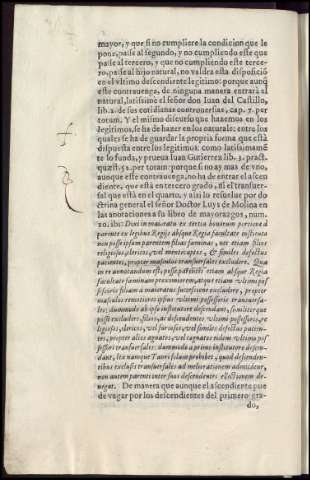 mayor, y que si no cumpliere la condicion que le
pone, passe al segundo, y no cumpliendo este que
passe al tercero, y que no cumpliendo este terce-
ro, passe al hijo natural, no valdra esta disposició
en el vltimo descendiente legitimo: porque aunq́
este contrauenga, de ninguna manera entrarà el
natural, latissimè el señor don Iuan del Castillo,
lib. 2. de sus cotidianas controuersias, cap. 7. per
totum. Y el mismo discurso que hazemos en los
legitimos, se ha de hazer en los naturale: entre los
quales se ha de guardar la propria forma que està
dispuesta entre los legitimos: como latissimamẽ
te lo funda, y prueua Iuan Gutierrez lib. 3. pract.
quæst. 52. per totum: porque si no ay mas de vno,
aunque este contrauenga, no ha de entrar el ascen
diente, que està en tercero grado, ni el transuer-
sal que està en el quarto, y assi lo resuelue por do
ctrina general el señor Doctor Luys de Molina en
las anotaciones a su libro de mayorazgos, num.
20. ibi: Dum in maioratu ex tertia bonorum portione à
parente ex legibus Regiis absque Regia facultate instituta
non posse ipsum parentem filias fæminas, nec etiam filios
religiosos, clericos, vel mentecaptos, & similes defectus
patientes, propter masculos transuersales excludere. Qua
in re annotandum est, posse patrem etiam absque Regia
facultate fæminam proximiorem, atque etiam vltimi pos
sessoris filiam à maioratus successione excludere, propter
masculos remotiores ipsius vltimi possessoris transuersa-
les: dummodo ab ipso institutore descendant, similiter que
posse excludere, filios, ac descendentes vltimi possessoris, re
ligiosos, clericos, vel furiosos, vel similes defectus patien-
tes, propter alios agnatos, vel cognatos eiusdem vltimi pos
sessoris transuersales: dummodo à primo institutore descen-
dant, lex namque Tauri solum prohibet, quod descenden-
tibus exclusis transuersales ad meliorationem admittantur,
non autem parenti inter suos descendentes electionem de-
negat. De manera que aunque el ascendiente pue
de vagar por los descendientes del primero gra-
do,